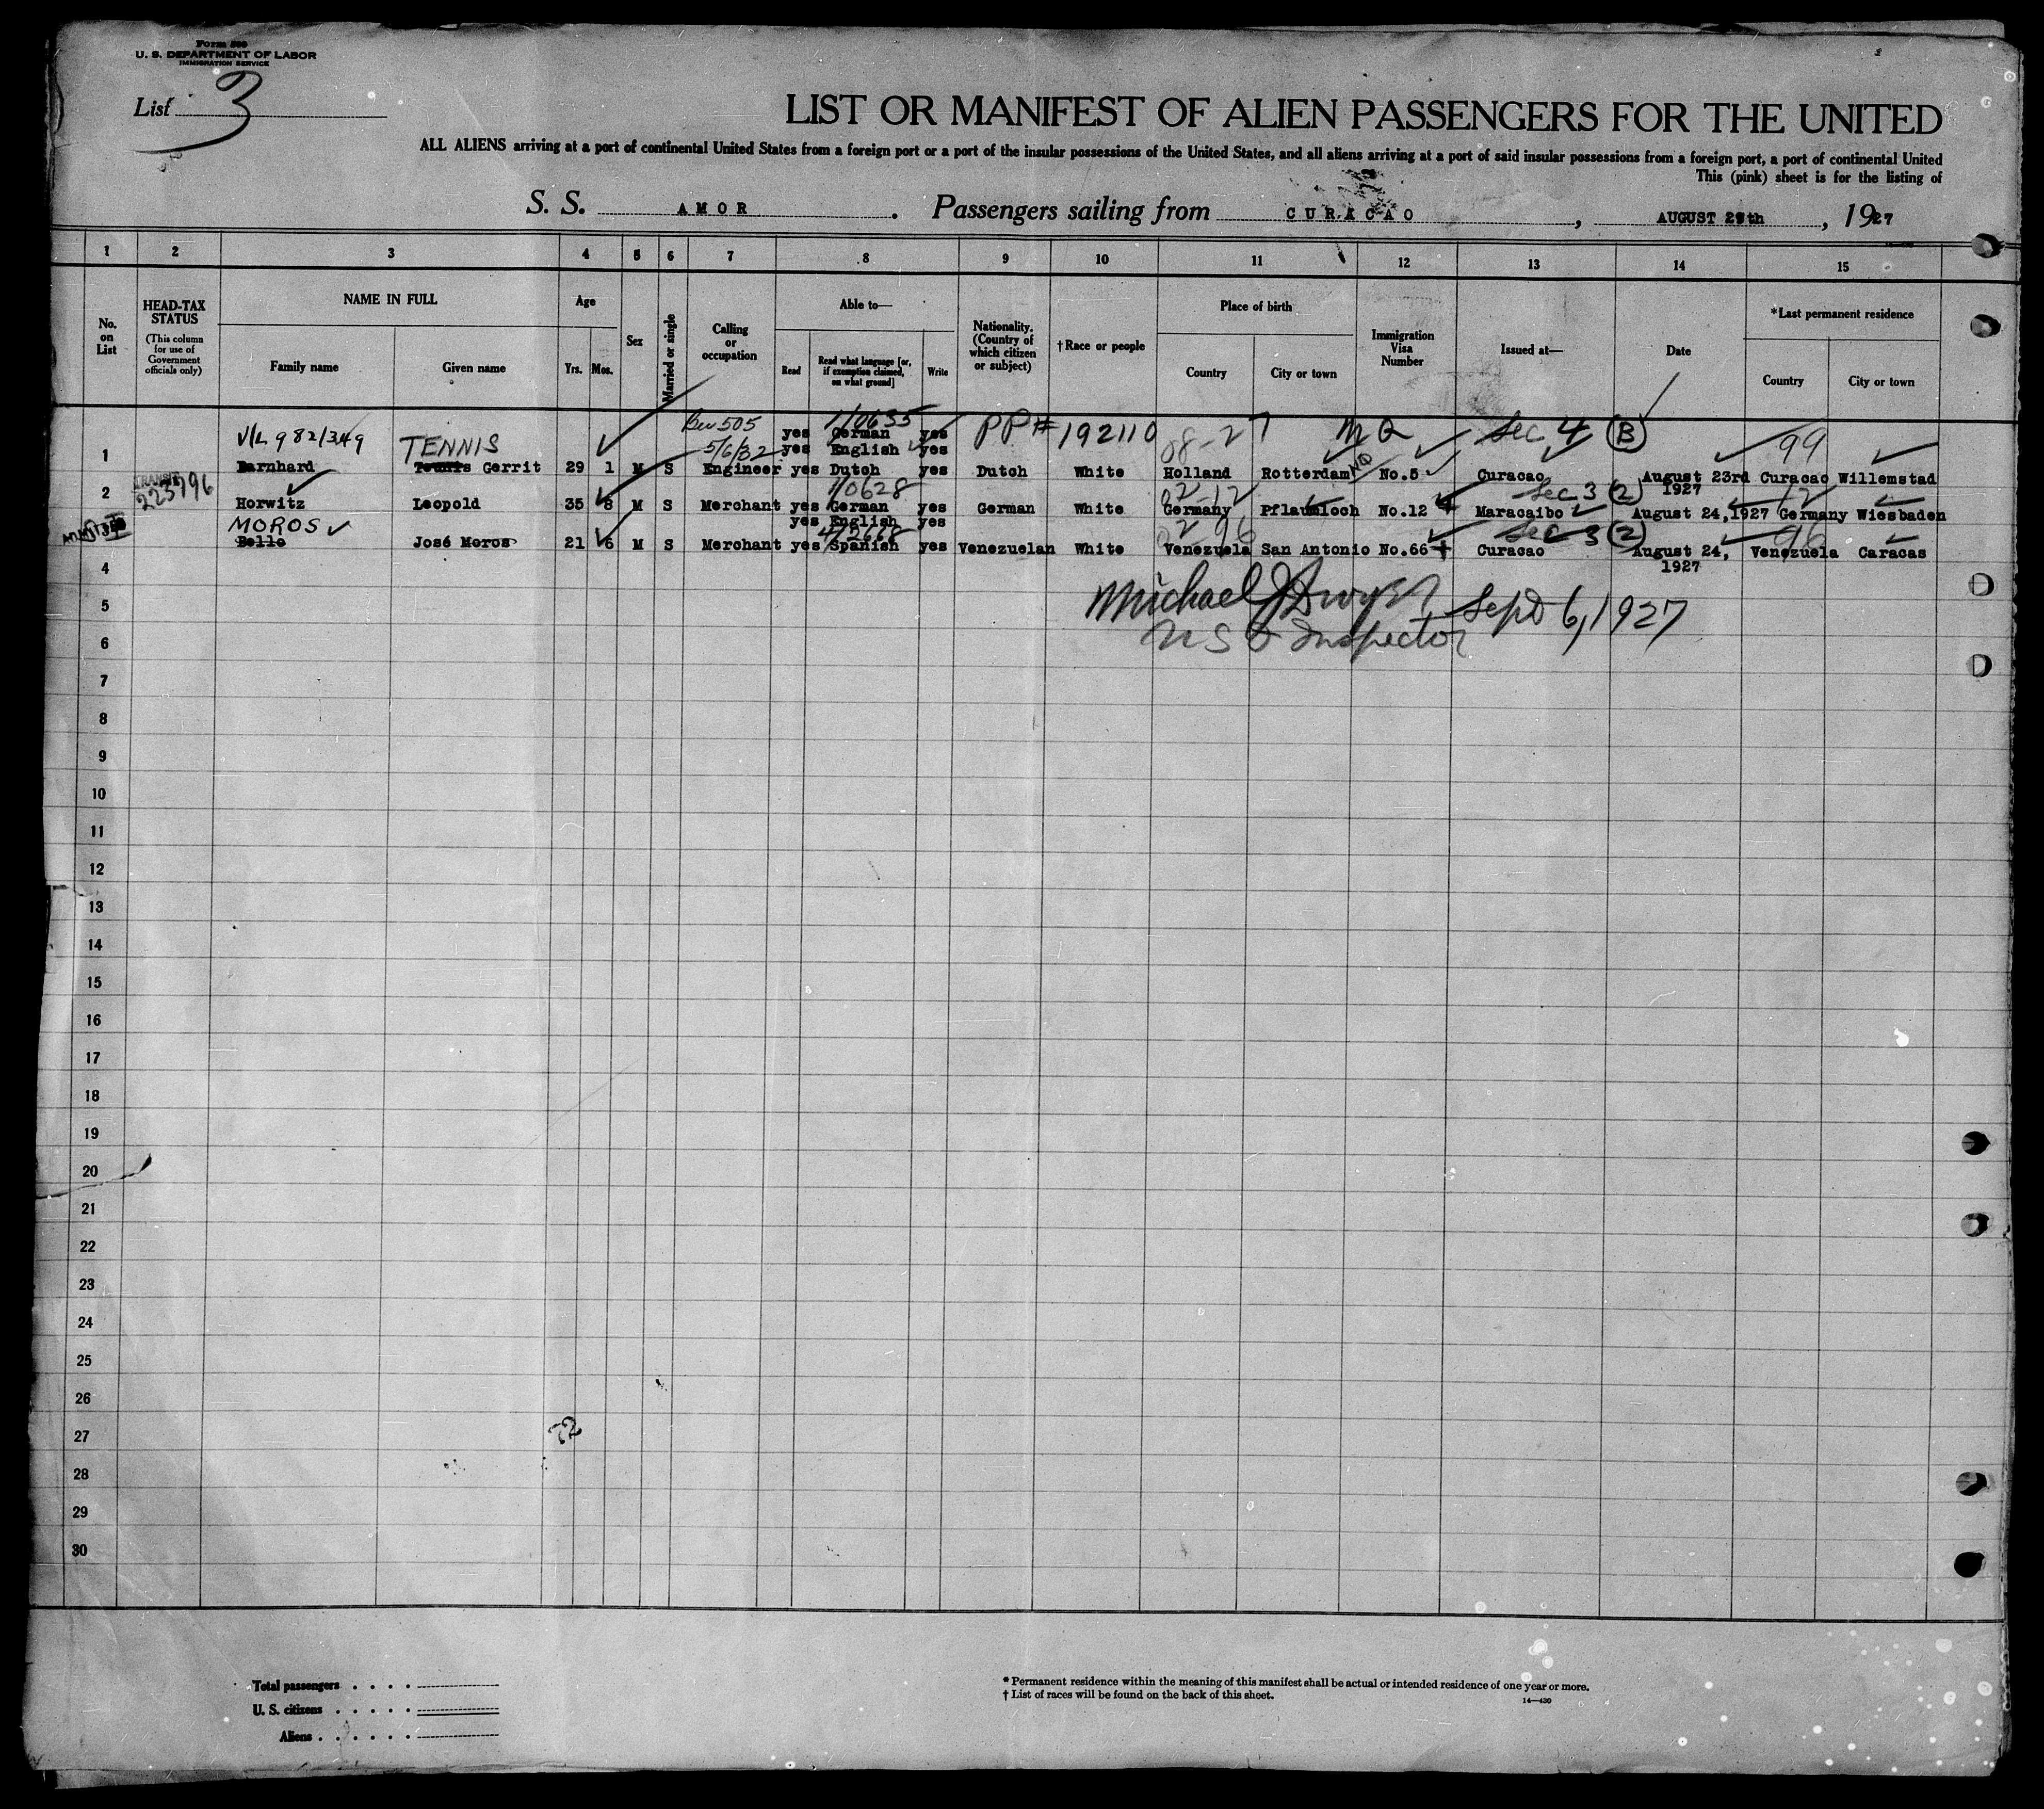 Form 500
U. S. DEPARTMENT OF LABOR
IMMIGRATION SERVICE
List 3
LIST OR MANIFEST OF ALIEN PASSENGERS FOR THE UNITED
ALL ALIENS arriving at a port of continental United States from a foreign port or a port of the insular possessions of the United States, and all aliens arriving at a port of said insular possessions from a foreign port, a port of continental United
This (pink) sheet is for the listing of
S. S. AMOR . Passengers sailing from CURACAO , AUGUST 29th , 1927
1 2 3 4 5 6 7 8 9 10 11 12 13 14 15
No. on List
HEAD-TAX STATUS
(This column for use of Government officials only)
NAME IN FULL
Family name
Given name
Age
Yrs.
Mos.
Sex
Married or single
Calling or occupation
Able to—
Read
Read what language [or, if exemption claimed, on what ground]
Write
Nationality. (Country of which citizen or subject)
†Race or people
Place of birth
Country
City or town
Immigration Visa Number
Issued at—
Date
*Last permanent residence
Country
City or town
V/L 982/349 TENNIS 505 1/0635 PP# 192110 08-27 NQ Sec 4 (B) 99
yes German yes
5/6/32 yes English yes
1 Barnhard Gerrit 29 1 M S Engineer yes Dutch yes Dutch White Holland Rotterdam No.5 Curacao August 23rd Curacao Willemstad
1927
TRANSIT 223796 1/0628 02-12 Sec 3 (2) 12
2 Horwitz Leopold 35 8 M S Merchant yes German yes German White Germany Pflaumloch No.12 Maracaibo August 24,1927 Germany Wiesbaden
yes English yes
MOROS 4/2668 02-96 Sec 3 (2) 96
Bello José Moros 21 6 M S Merchant yes Spanish yes Venezuelan White Venezuela San Antonio No.66 Curacao August 24, Venezuela Caracas
1927
4
Michael J Dwyer Sept 6, 1927
5
US I Inspector
6
7
8
9
10
11
12
13
14
15
16
17
18
19
20
21
22
23
24
25
26
72
27
28
29
30
Total passengers . . . .
U. S. citizens . . . . .
Aliens . . . . . .
* Permanent residence within the meaning of this manifest shall be actual or intended residence of one year or more.
† List of races will be found on the back of this sheet.
14—430